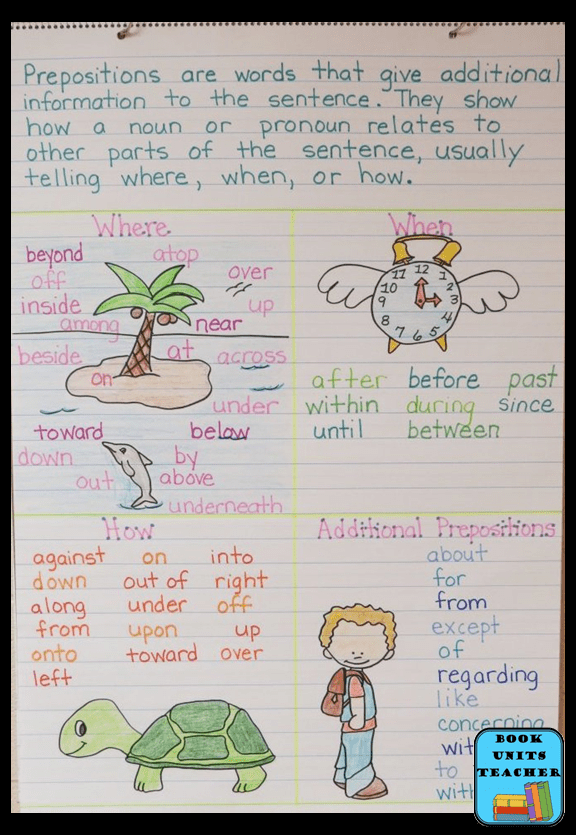 Prepositions are words that give additional
information to the sentence. They show
how a noun or pronoun relates to
other parts of the sentence, usually
telling where, when, or how.
Where
beyond atop
off over
inside up
among near
beside at across
on
under
toward below
down by
out above
underneath
When
11 12 1
10 2
9 3
8 4
7 6 5
after before past
within during since
until between
How
against on into
down out of right
along under off
from upon up
onto toward over
left
Additional Prepositions
about
for
from
except
of
regarding
like
concerning
to
BOOK
UNITS
TEACHER